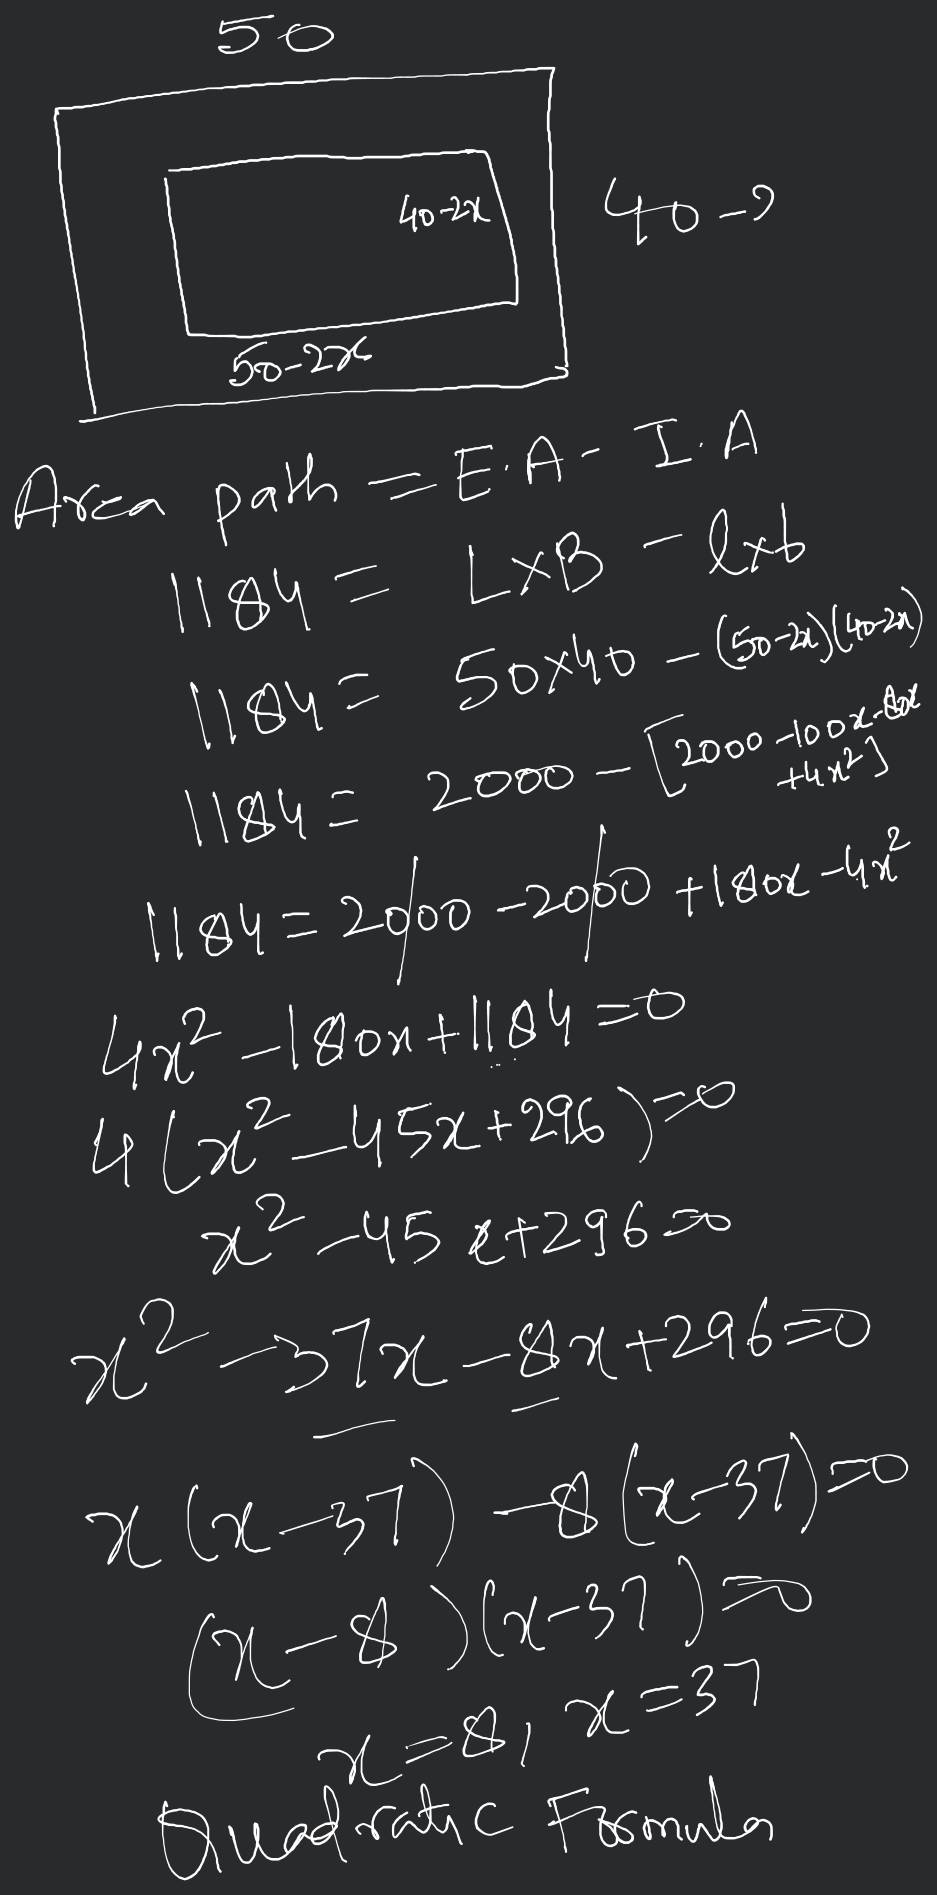 50
40-2x
40-?
50-2x
Area path = E.A - I.A
1184 = L×B - l×b
1184 = 50×40 - (50-2x)(40-2x)
1184 = 2000 - [2000-100x-80x
+4x²]
1184 = 2000 - 2000 + 180x - 4x²
4x² - 180x + 1184 = 0
4(x² - 45x + 296) = 0
x² - 45x + 296 = 0
x² - 37x - 8x + 296 = 0
x(x-37) - 8(x-37) = 0
(x-8)(x-37) = 0
x = 8, x = 37
Quadratic Formula